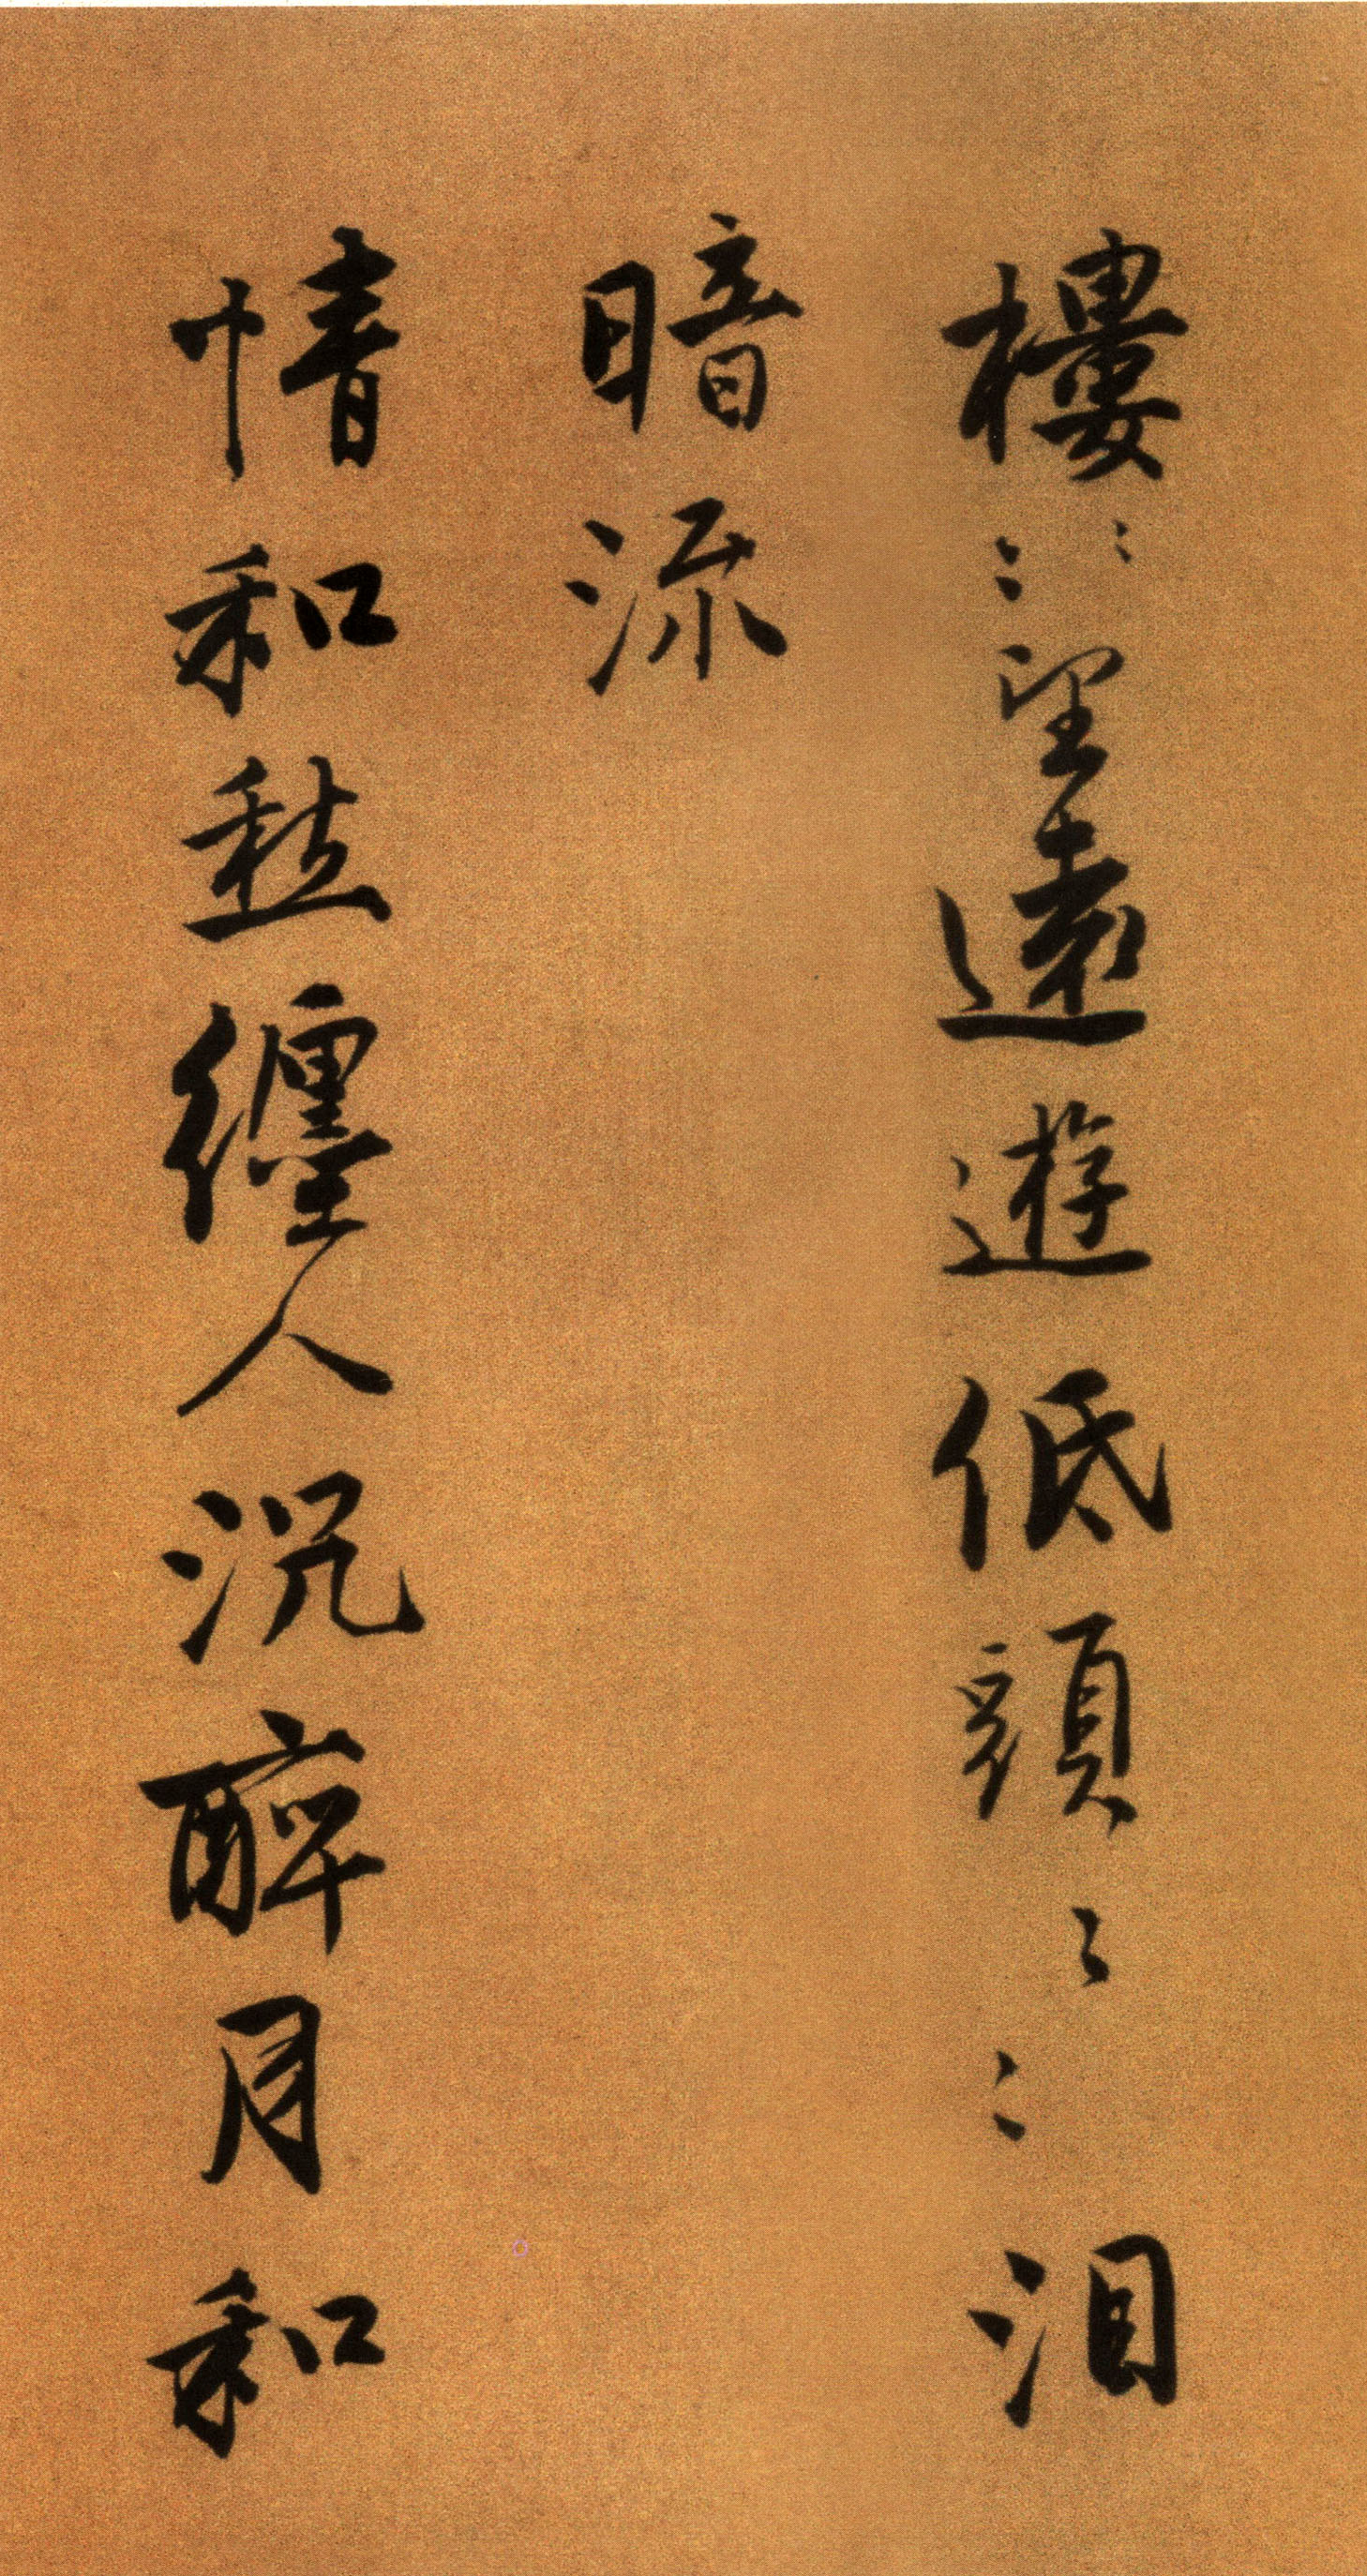 樓〻〻望遠遊低頭〻〻淚
暗流
情和愁纏人沉醉月和